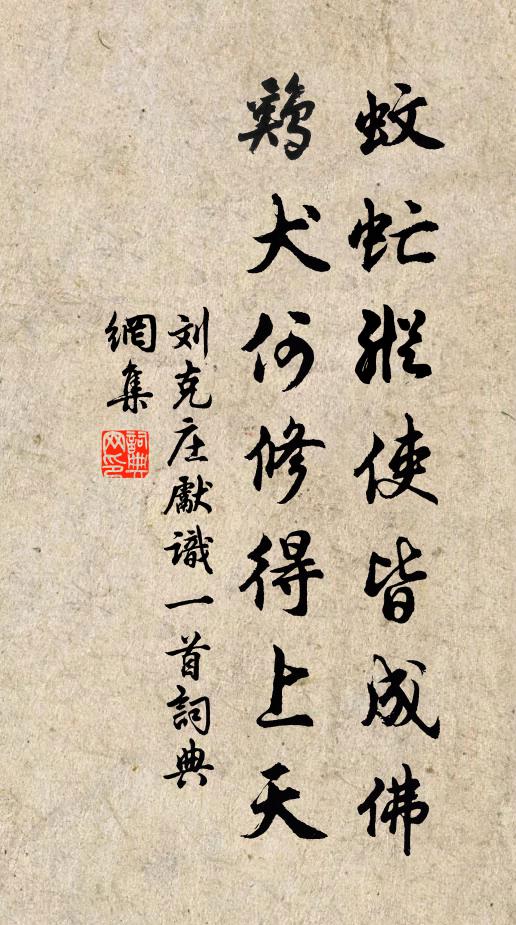 蚊虻縱使皆成佛
鷄犬何修得上天
刘克庄獻識一首詞典
網集
詞典網印